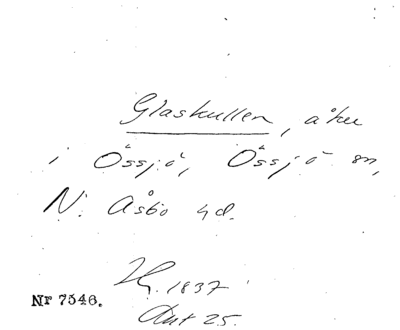 Glaskullen, åker
i Össjö, Össjö sn,
N. Åsbo hd.
Hf. 1837
Ant 25.
Nr 7546.